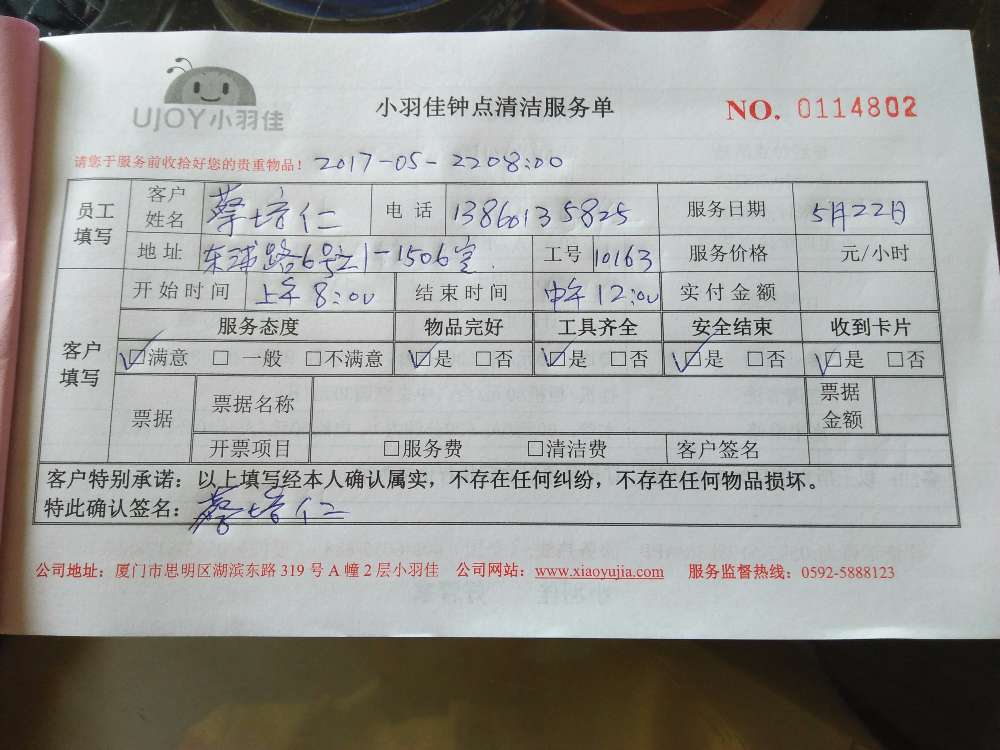 UJOY小羽佳
小羽佳钟点清洁服务单
NO. 0114802
请您于服务前收拾好您的贵重物品! 2017-05-22 08:00
员工填写 客户姓名 蔡培仁 电话 13860135825 服务日期 5月22日
地址 东浦路6号之1-1506室. 工号 10163 服务价格 元/小时
客户填写 开始时间 上午8:00 结束时间 中午12:00 实付金额
服务态度 物品完好 工具齐全 安全结束 收到卡片
☑满意 □一般 □不满意 ☑是 □否 ☑是 □否 ☑是 □否 ☑是 □否
票据 票据名称 票据金额
开票项目 □服务费 □清洁费 客户签名
客户特别承诺：以上填写经本人确认属实，不存在任何纠纷，不存在任何物品损坏。
特此确认签名：蔡培仁
公司地址：厦门市思明区湖滨东路 319 号 A 幢 2 层小羽佳 公司网站：www.xiaoyujia.com 服务监督热线：0592-5888123